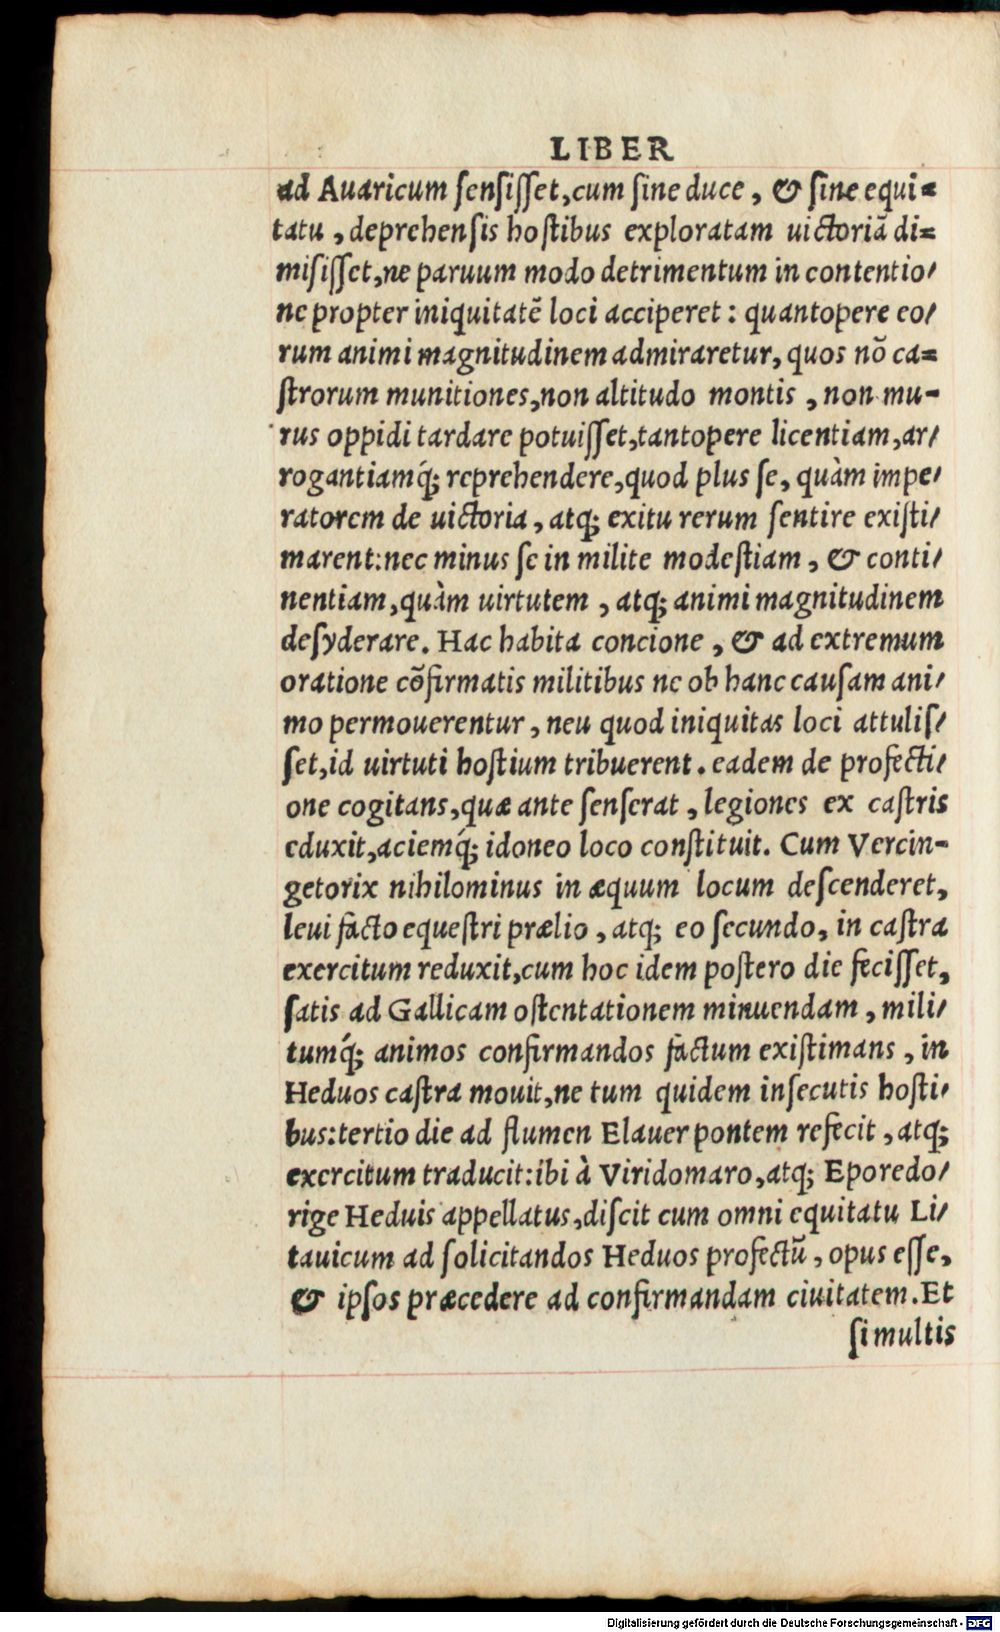 LIBER
ad Auaricum ſenſiſſet,cum ſine duce, & ſine equi=
tatu, deprehenſis hoſtibus exploratam uictoriā di=
miſiſſet,ne paruum modo detrimentum in contentio/
ne propter iniquitatē loci acciperet: quantopere eo/
rum animi magnitudinem admiraretur, quos nō ca=
ſtrorum munitiones,non altitudo montis, non mu-
rus oppidi tardare potuiſſet,tantopere licentiam,ar/
rogantiamq́; reprehendere,quod plus ſe, quàm impe/
ratorem de uictoria, atq; exitu rerum ſentire exiſti/
marent:nec minus ſe in milite modeſtiam, & conti/
nentiam,quàm uirtutem, atq; animi magnitudinem
deſyderare. Hac habita concione, & ad extremum
oratione cōfirmatis militibus ne ob hanc cauſam ani/
mo permouerentur, neu quod iniquitas loci attuliſ/
ſet,id uirtuti hoſtium tribuerent. eadem de profecti/
one cogitans,quæ ante ſenſerat, legiones ex caſtris
eduxit,aciemq́; idoneo loco conſtituit. Cum Vercin-
getorix nihilominus in æquum locum deſcenderet,
leui facto equeſtri prælio, atq; eo ſecundo, in caſtra
exercitum reduxit,cum hoc idem poſtero die feciſſet,
ſatis ad Gallicam oſtentationem minuendam, mili/
tumq́; animos confirmandos factum exiſtimans, in
Heduos caſtra mouit,ne tum quidem inſecutis hoſti/
bus:tertio die ad flumen Elauer pontem refecit, atq;
exercitum traducit:ibi à Viridomaro,atq; Eporedo/
rige Heduis appellatus,diſcit cum omni equitatu Li/
tauicum ad ſolicitandos Heduos profectū, opus eſſe,
& ipſos præcedere ad confirmandam ciuitatem. Et
ſi multis
Digitalisierung gefördert durch die Deutsche Forschungsgemeinschaft - DFG